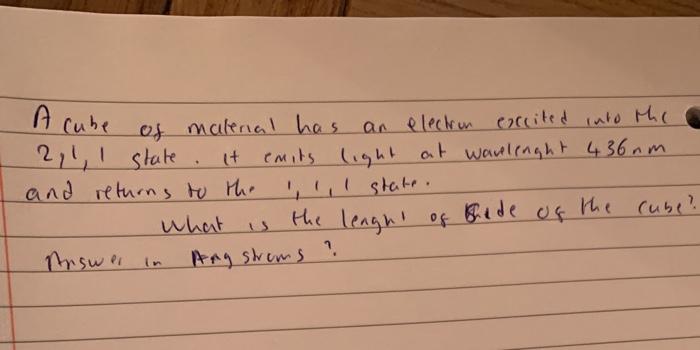 A cube of material has an electron excited into the
2,1,1 state. It emits light at wavelenght 436nm
and returns to the 1,1,1 state.
What is the lenght of side of the cube?
Answer in Angstroms?